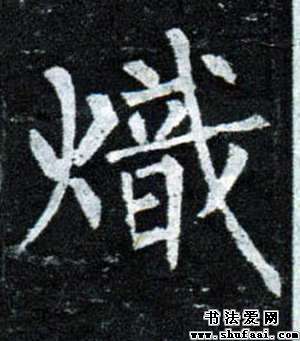 熾
书法爱网
www.shufaai.com